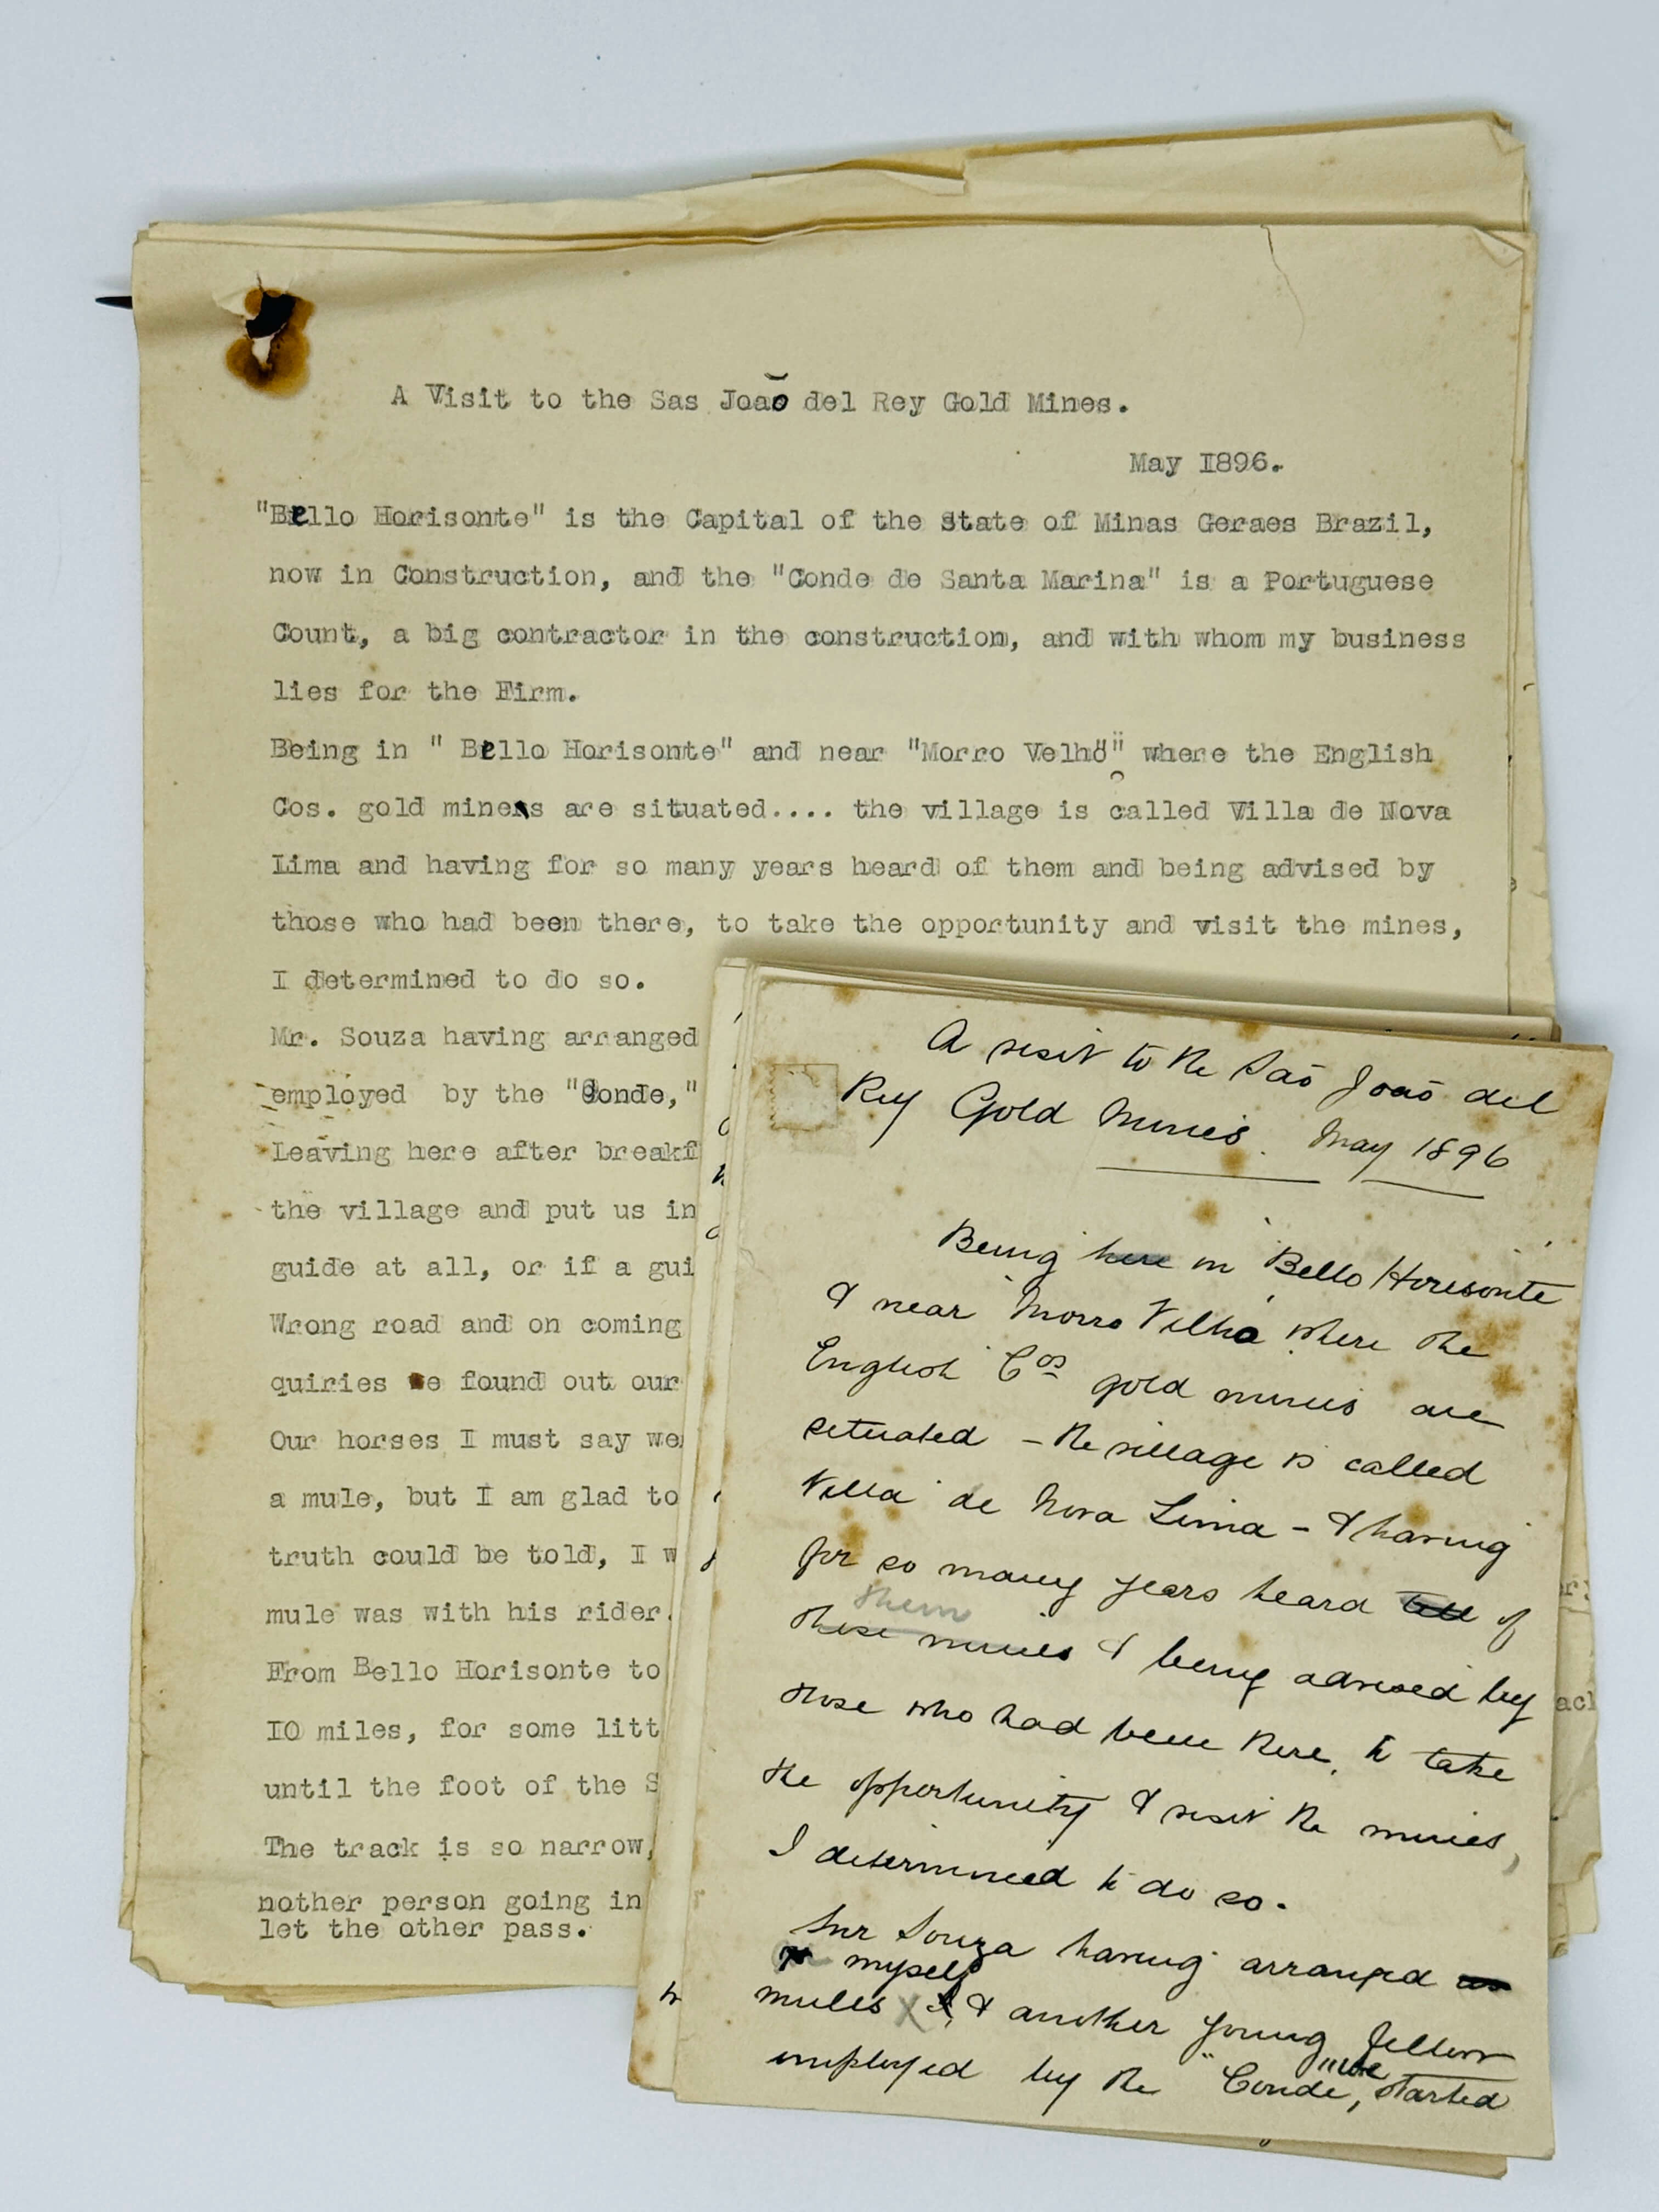 A Visit to the Sas Joaõ del Rey Gold Mines.
May I896.
"Bello Horisonte" is the Capital of the State of Minas Geraes Brazil,
now in Construction, and the "Conde de Santa Marina" is a Portuguese
Count, a big contractor in the construction, and with whom my business
lies for the Firm.
Being in " Bello Horisonte" and near "Morro Velho" where the English
Cos. gold mines are situated.... the village is called Villa de Nova
Lima and having for so many years heard of them and being advised by
those who had been there, to take the opportunity and visit the mines,
I determined to do so.
Mr. Souza having arranged
employed by the "Conde,"
Leaving here after breakf
the village and put us in
guide at all, or if a gui
Wrong road and on coming
quiries we found out our
Our horses I must say we
a mule, but I am glad to
truth could be told, I w
mule was with his rider.
From Bello Horisonte to
IO miles, for some litt
until the foot of the S
The track is so narrow,
nother person going in
let the other pass.
A visit to the Saõ Joaõ del
Rey Gold Mines. May 1896
Being here in "Bello Horisonte"
& near "Morro Velho" where the
English Cos gold mines are
situated – the village is called
Villa de Nova Lima – & having
for so many years heard tell of
them
these mines & being advised by
those who had been there, to take
the opportunity & visit the mines,
I determined to do so.
Snr Souza having arranged
myself
mules X I, & another young fellow
we
employed by the "Conde," started